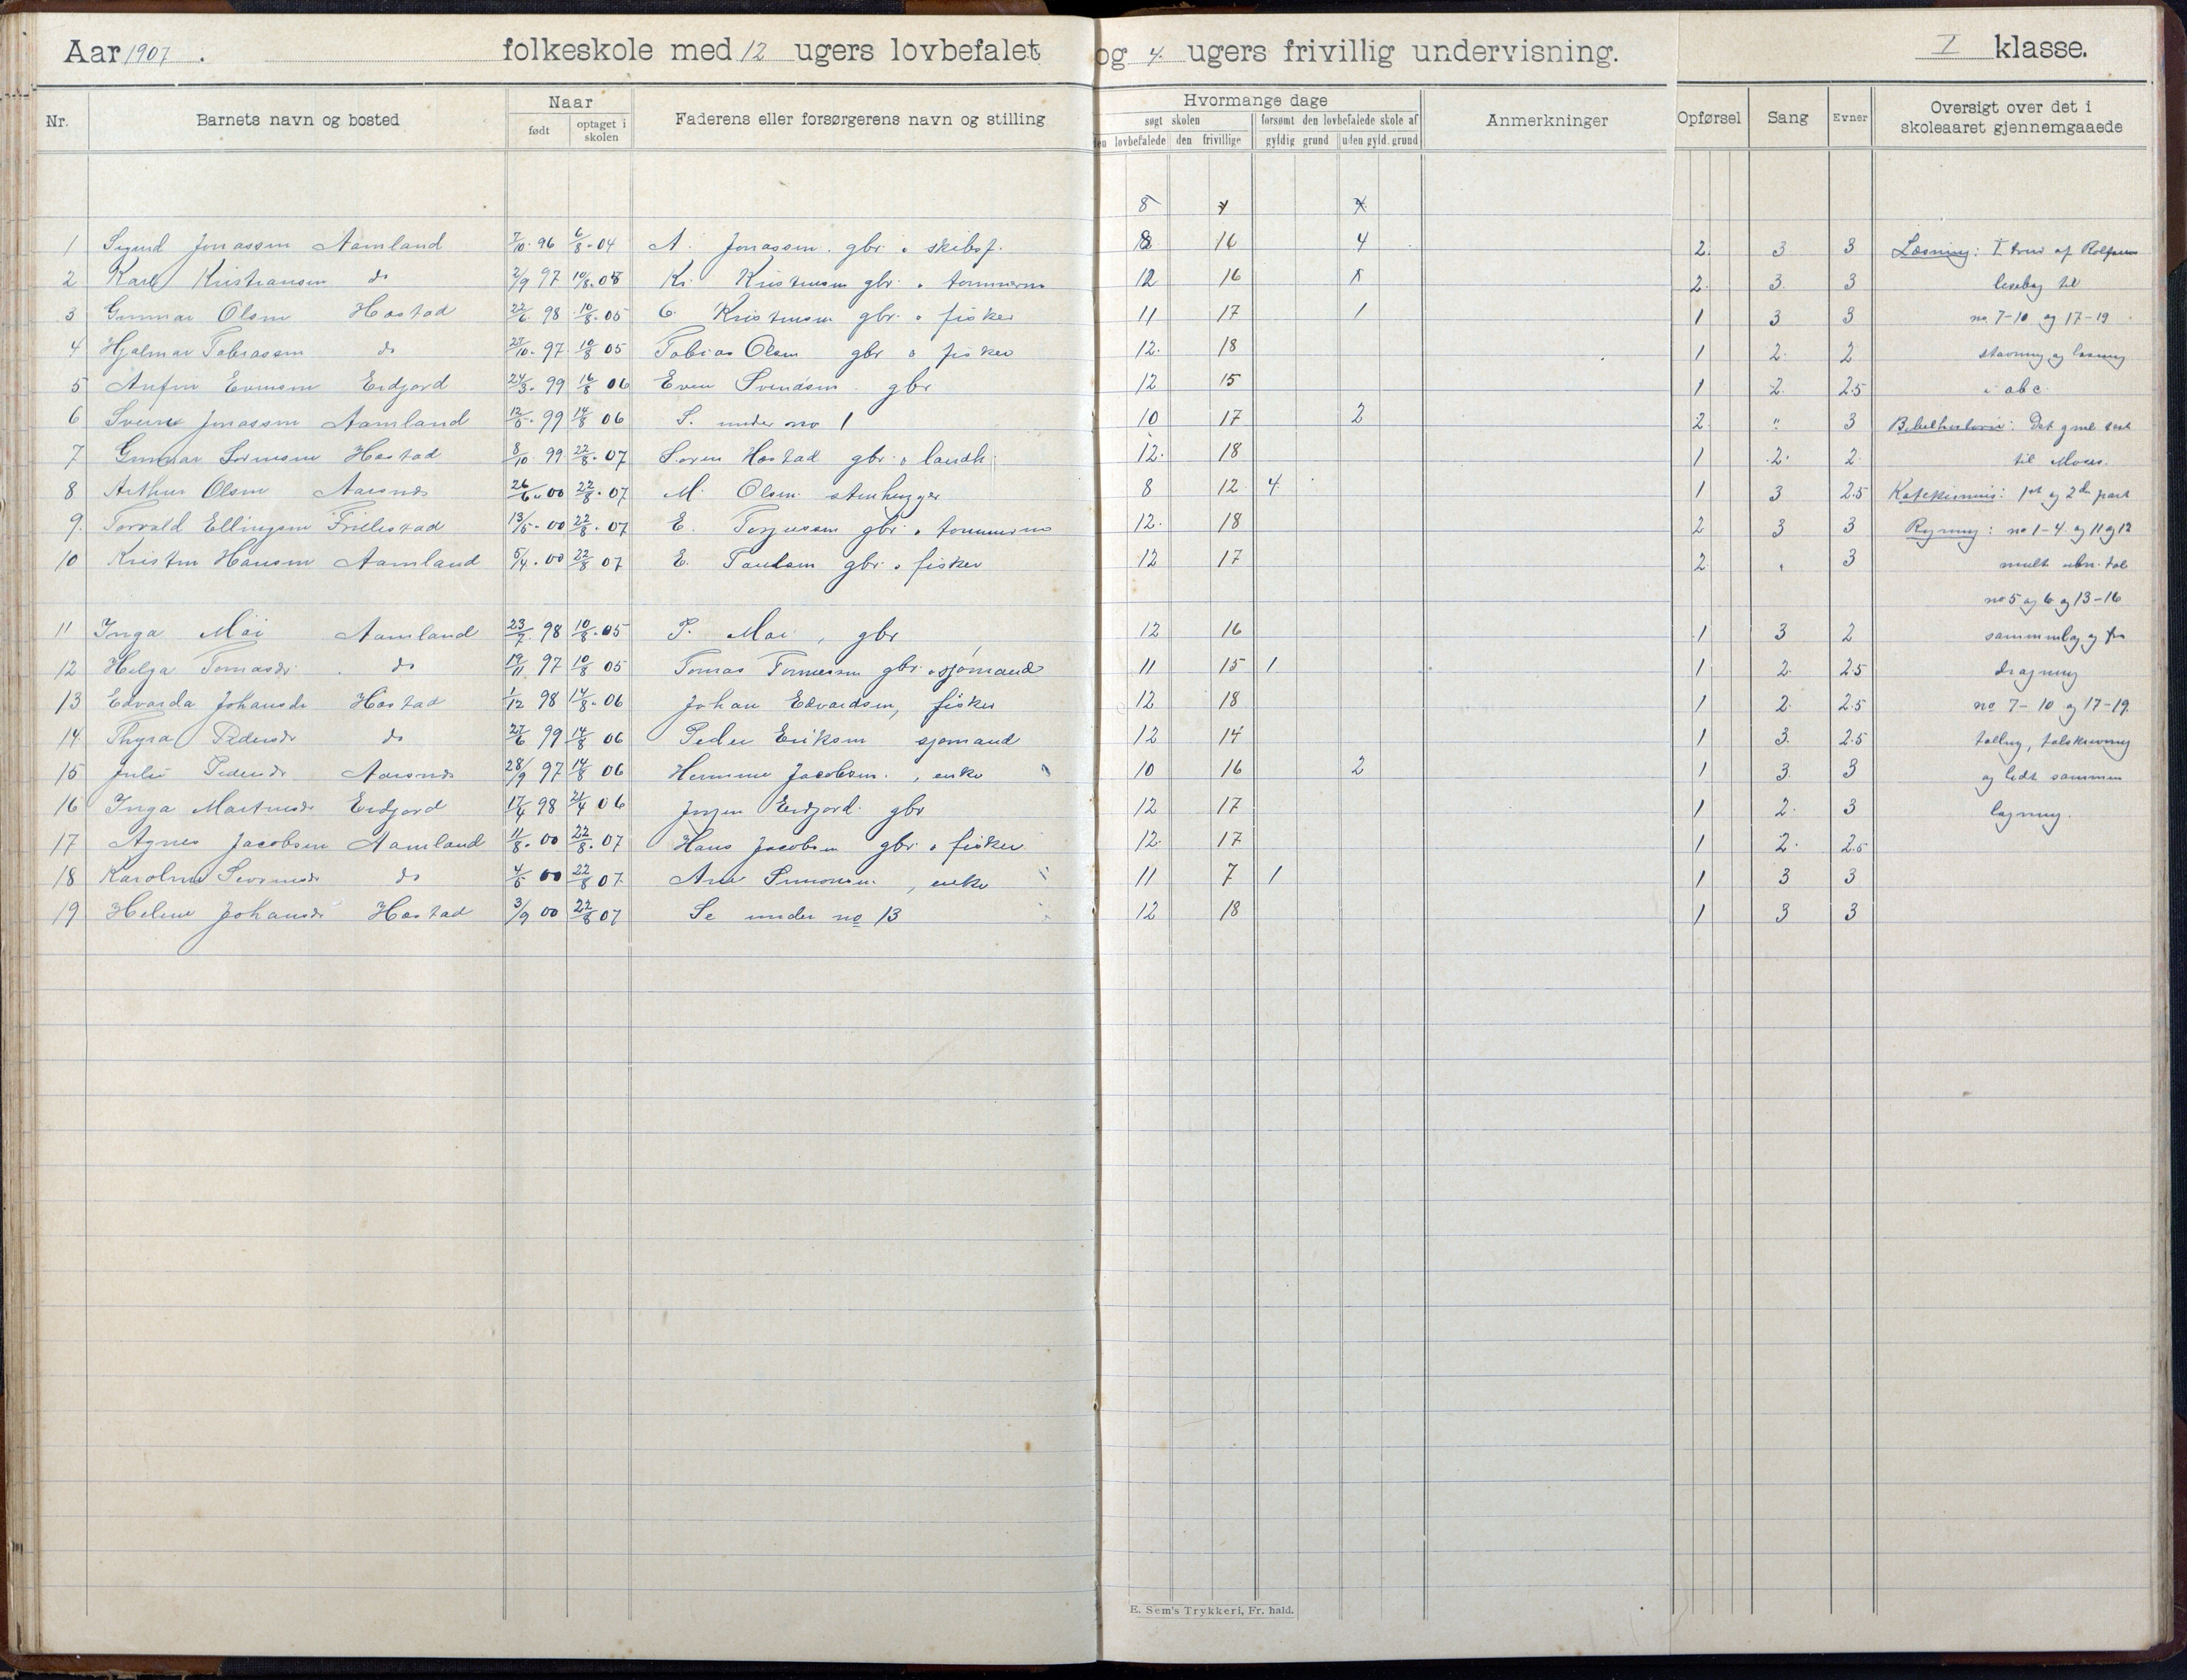 Aar 1907. folkeskole med 12 ugers lovbefalet og 4. ugers frivillig undervisning. I klasse.
Nr. Barnets navn og bosted Naar født optaget i skolen Faderens eller forsørgerens navn og stilling Hvormange dage søgt skolen den lovbefalede den frivillige forsømt den lovbefalede skole af gyldig grund uden gyld. grund Anmerkninger Opførsel Sang Evner Oversigt over det i skoleaaret gjennemgaaede
1 Sigurd Jonassen Aamland 7/10. 96 6/8. 04 A. Jonassen. gbr. o skibsf. 8 16 4 2. 3 3 Læsning: I trin af Rolfsens
2 Karl Kristiansen do 2/9 97 10/8. 05 Kr. Kristensen gbr. o tømmerm 12 16 2. 3. 3 lesebog til
3 Gunnar Olsen Hastad 22/6 98 10/8. 05 O. Kristensen gbr. o fisker 11 17 1 1 3 3 no. 7-10 og 17-19
4 Hjalmar Tobiassen do 27/10. 97 10/8 05 Tobias Olsen gbr o fisker 12. 18 1 2. 2 stavning og læsning
5 Anfin Evensen Eidjord 24/3. 99 14/8 06 Even Svendsen gbr 12 15 1 2. 2.5 i abc.
6 Sverre Jonassen Aamland 12/5. 99 14/8 06 S. under no 1 10 17 2 2. " 3 Bibelhistorie: Det gml test
7 Gunnar Sørensen Hastad 8/10. 99 22/8. 07 Søren Hastad gbr. o landh. 12. 18 1 2. 2. til Moses.
8 Arthur Olsen Aarsnes 26/6. 00 22/8. 07 M. Olsen. stenhugger 8 12 4 1 3 2.5 Katekismus: 1st og 2den part
9. Torvald Ellingsen Frillestad 13/5. 00 22/8. 07 E. Torjussen gbr. o tømmerm 12. 18 2 3 3 Regning: no 1-4. og 11 og 12
10 Kristen Hansen Aamland 5/4. 00 22/8 07 E. Paulsen gbr. o fisker 12 17 2. " 3 mult ubn. tal
no 5 og 6 og 13-16
11 Inga Moi Aamland 23/7. 98 10/8. 05 P. Moi, gbr 12 16 1 3 2 sammenlæg og fra
12 Helga Tomasdr. do 19/11 97 10/8 05 Tomas Tomassen gbr. o sjømand 11 15 1 1 2. 2.5 dragning
13 Edvarda Johansdr Hastad 1/12 98 14/8. 06 Johan Edvardsen, fisker 12 18 1 2. 2.5 no 7-10 og 17-19.
14. Thyra Pedersdr do 27/6 99 14/8 06 Peder Eriksen sjømand 12 14 1 3. 2.5 telling, talskrivning
15 Julie Pedersdr. Aarsnes 28/9 97 14/8 06 Jacobsen, enke 10 16 2 1 3 3 og lidt sammen
16 Inga Martinsdr Eidjord 17/4 98 21/4 06 Eidjord. gbr 12 17 1 2. 3 lægning.
17 Agnes Jacobsen Aamland 11/8. 00 22/8. 07 Hans Jacobsen gbr. o fisker 12. 17 1 2. 2.5
18 Karoline do 4/5 00 22/8 07 Ane Simonsen, enke 11 7 1 1 3 3
19 Helene Johansdr Hastad 3/9 00 22/8 07 Se under no 13 12 18 1 3 3
E. Sem's Trykkeri, Fr. hald.